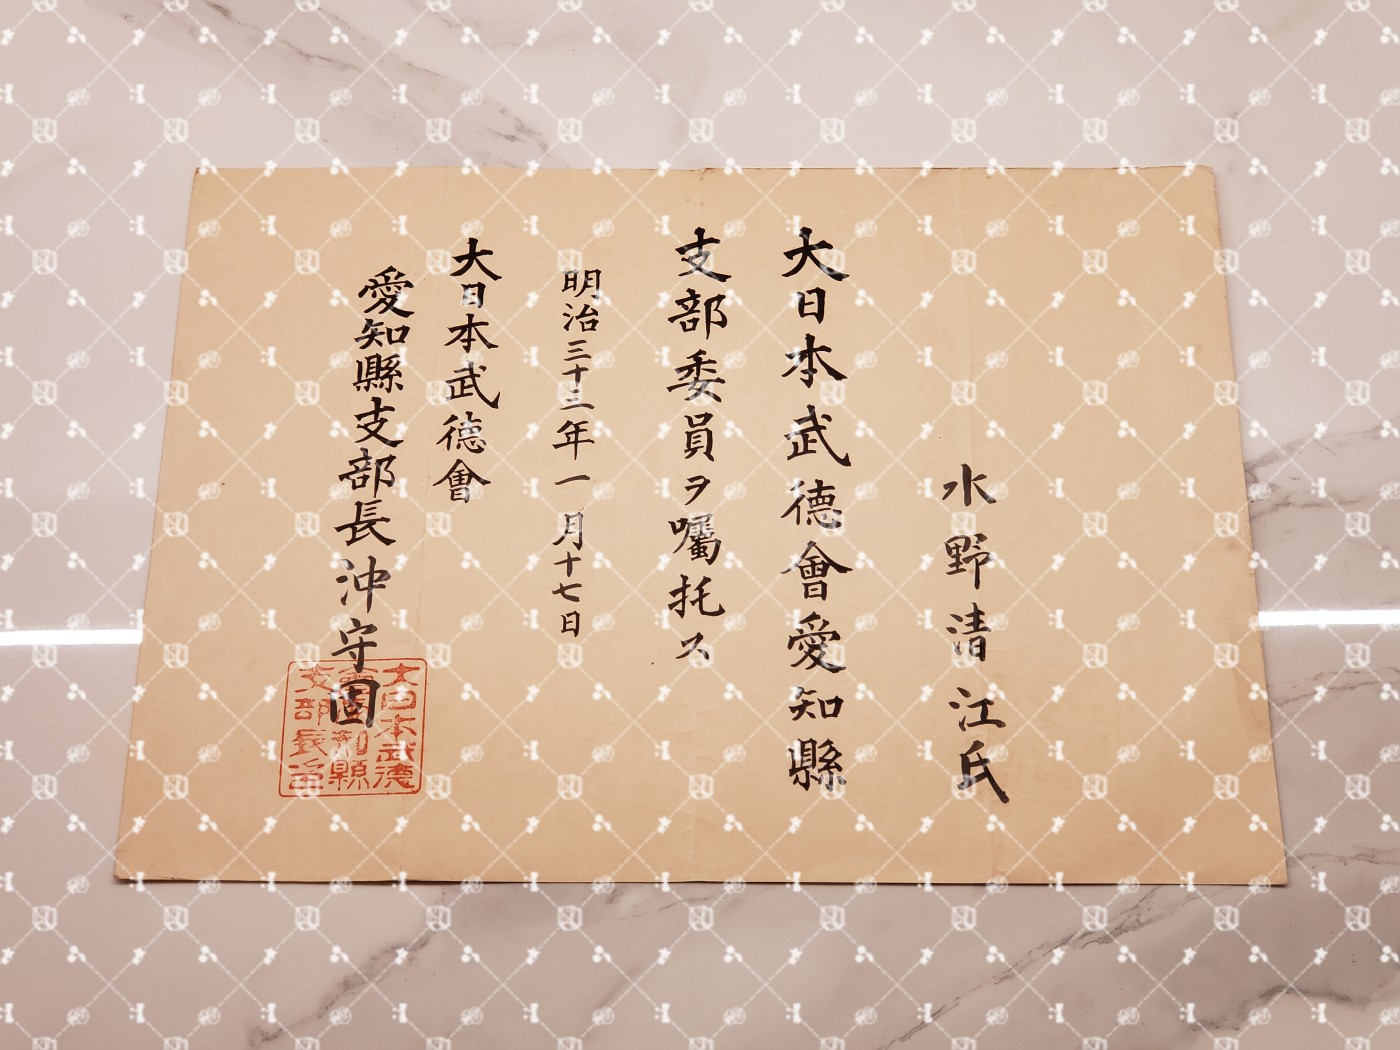 水野清江氏
大日本武德會愛知縣
支部委員ヲ囑托ス
明治三十三年一月十七日
大日本武德會
愛知縣支部長沖守固
大日本武德
會愛知縣
支部長印